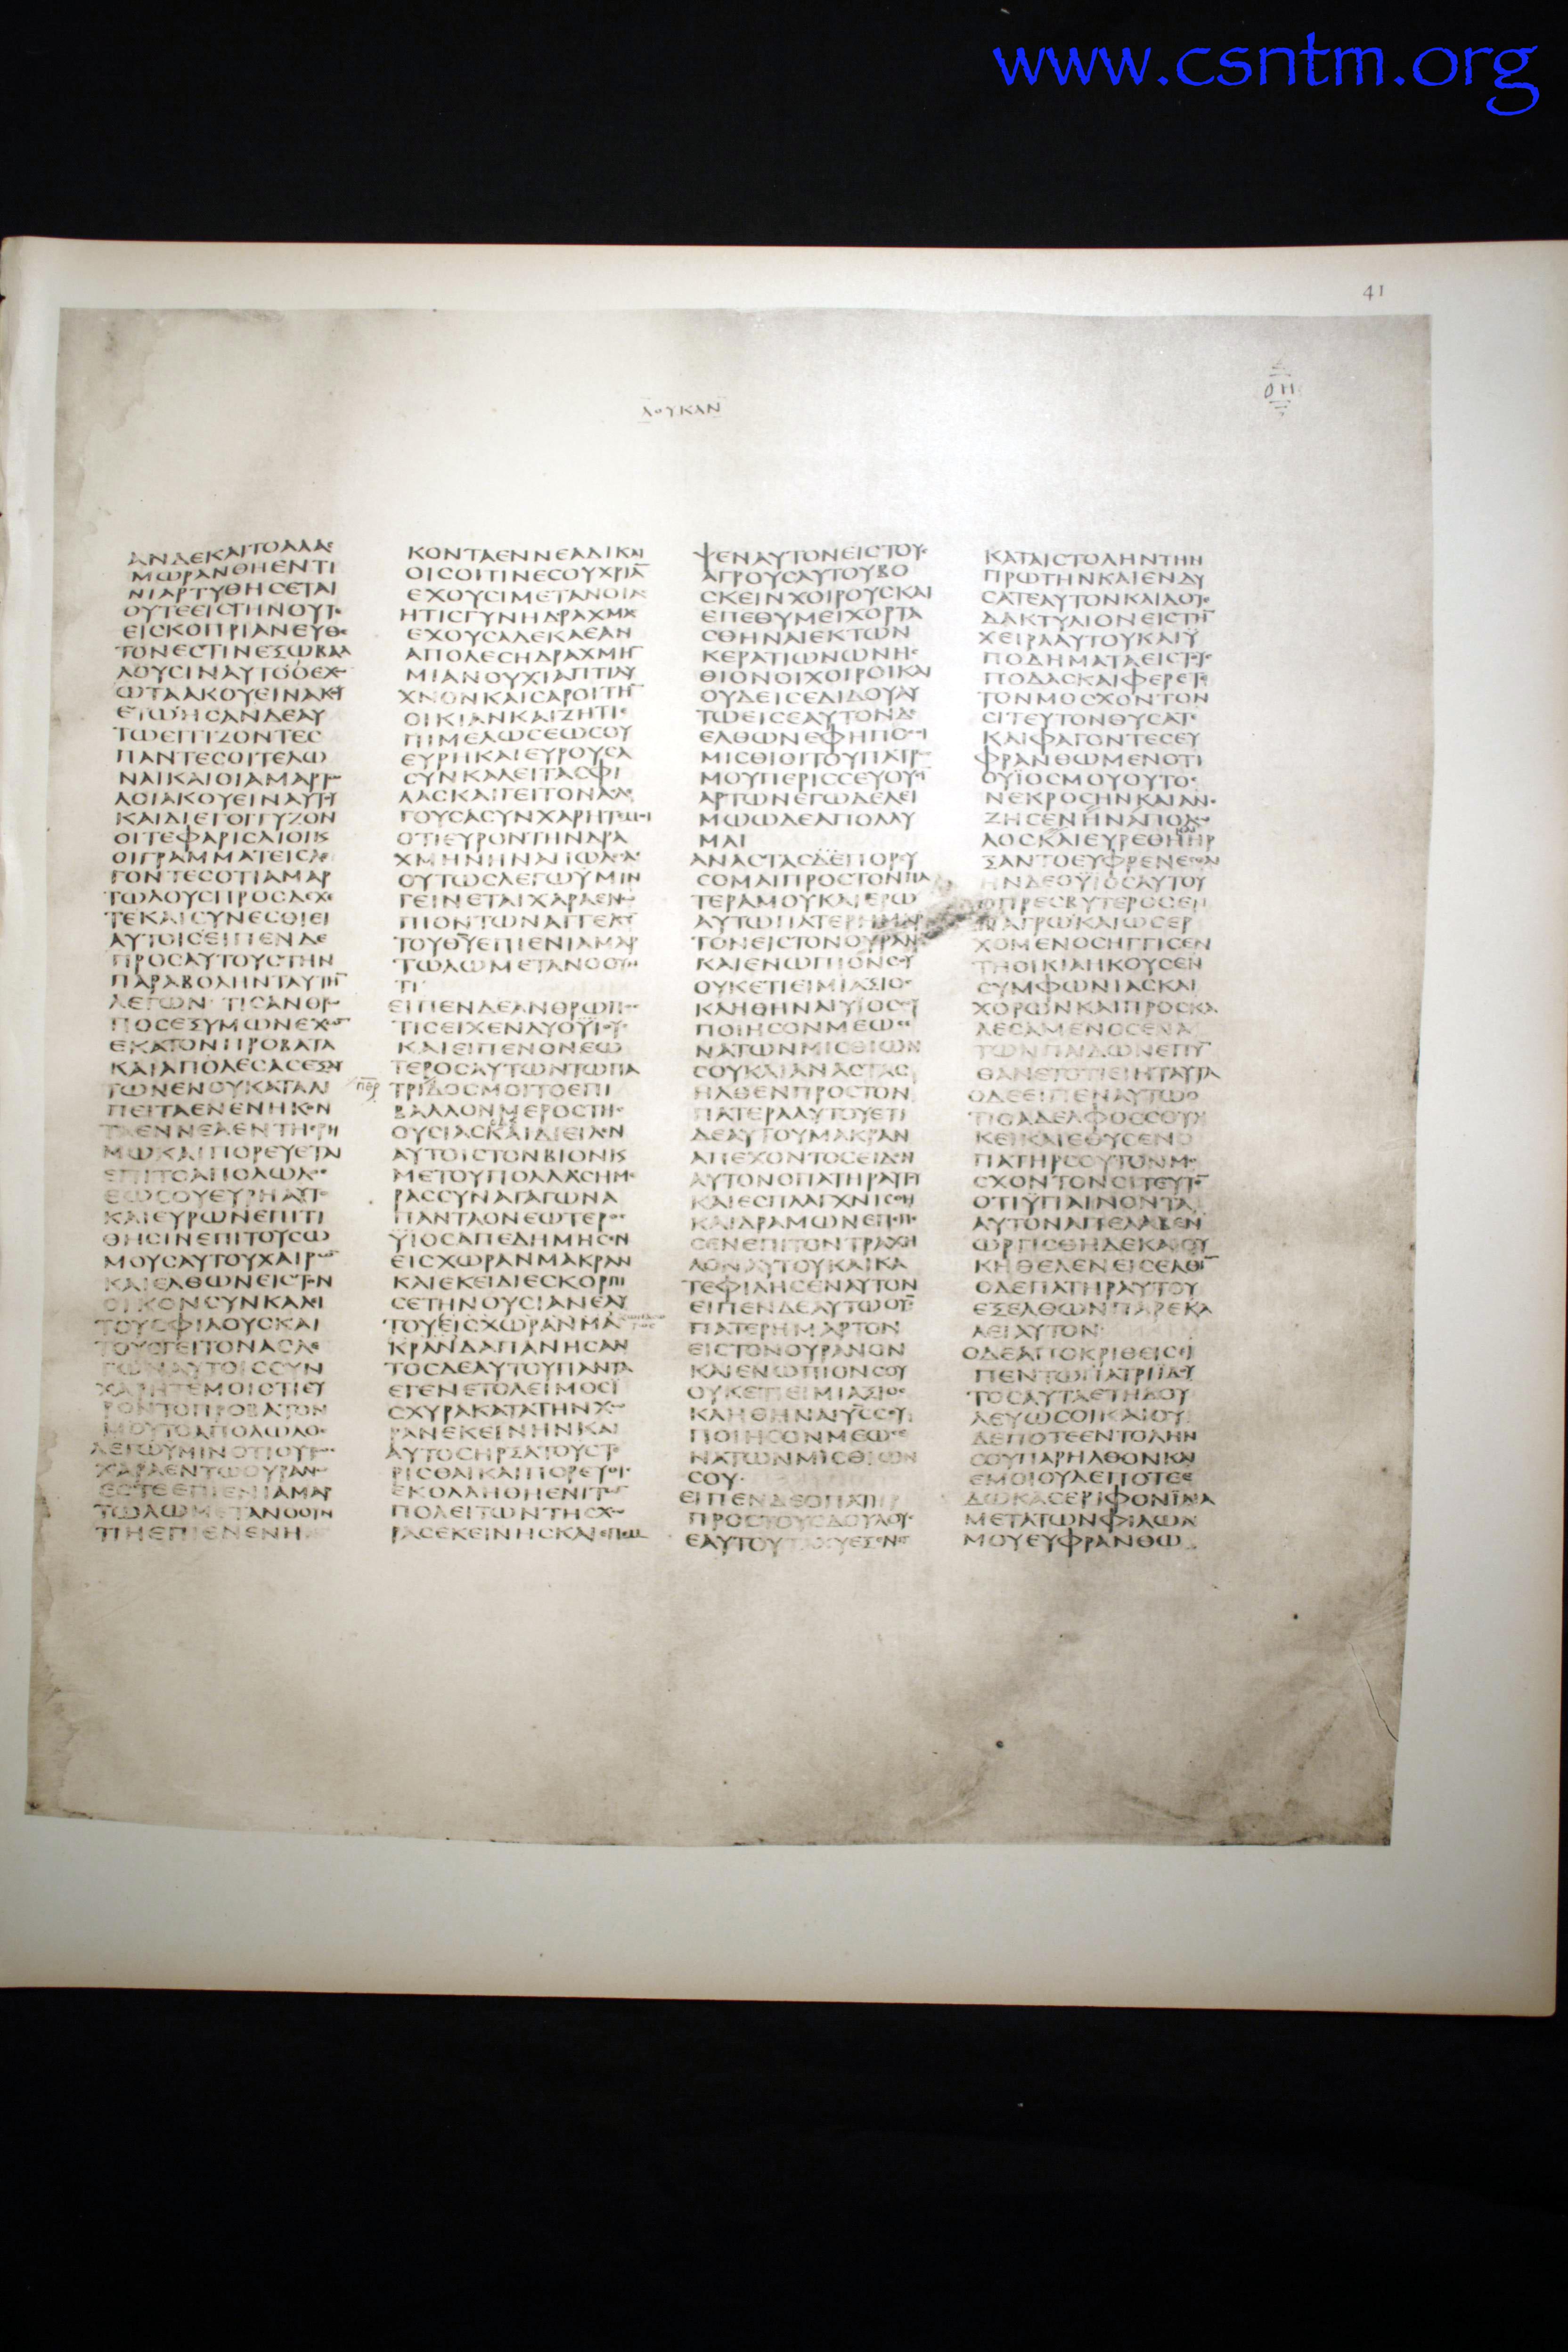 www.csntm.org
41
ΛΟΥΚΑΝ
ΟΗ
ΑΝΔΕΚΑΙΤΟΑΛΑϹ
ΜΩΡΑΝΘΗΕΝΤΙ
ΝΙΑΡΤΥΘΗϹΕΤΑΙ
ΟΥΤΕΕΙϹΤΗΝΟΥΤΕ
ΕΙϹΚΟΠΡΙΑΝΕΥΘΕ
ΤΟΝΕϹΤΙΝΕΞΩΒΑΛ
ΛΟΥϹΙΝΑΥΤΟΟΕΧΩ
ΩΤΑΑΚΟΥΕΙΝΑΚΟΥ
ΕΤΩΗϹΑΝΔΕΑΥ
ΤΩΕΓΓΙΖΟΝΤΕϹ
ΠΑΝΤΕϹΟΙΤΕΛΩ
ΝΑΙΚΑΙΟΙΑΜΑΡΤΩ
ΛΟΙΑΚΟΥΕΙΝΑΥΤΟΥ
ΚΑΙΔΙΕΓΟΓΓΥΖΟΝ
ΟΙΤΕΦΑΡΙϹΑΙΟΙΚΑΙ
ΟΙΓΡΑΜΜΑΤΕΙϹΛΕ
ΓΟΝΤΕϹΟΤΙΑΜΑΡ
ΤΩΛΟΥϹΠΡΟϹΔΕΧΕ
ΤΕΚΑΙϹΥΝΕϹΘΙΕΙ
ΑΥΤΟΙϹΕΙΠΕΝΔΕ
ΠΡΟϹΑΥΤΟΥϹΤΗΝ
ΠΑΡΑΒΟΛΗΝΤΑΥΤΗ̅
ΛΕΓΩΝ ΤΙϹΑΝΘΡΩ
ΠΟϹΕΞΥΜΩΝΕΧΩ̅
ΕΚΑΤΟΝΠΡΟΒΑΤΑ
ΚΑΙΑΠΟΛΕϹΑϹΕΞΑΥ
ΤΩΝΕΝΟΥΚΑΤΑΛΙ
ΠΕΙΤΑΕΝΕΝΗΚΟΝ
ΤΑΕΝΝΕΑΕΝΤΗΕΡΗ
ΜΩΚΑΙΠΟΡΕΥΕΤΑΙ
ΕΠΙΤΟΑΠΟΛΩΛΟϹ
ΕΩϹΟΥΕΥΡΗΑΥΤΟ
ΚΑΙΕΥΡΩΝΕΠΙΤΙ
ΘΗϹΙΝΕΠΙΤΟΥϹΩ
ΜΟΥϹΑΥΤΟΥΧΑΙΡΩ̅
ΚΑΙΕΛΘΩΝΕΙϹΤΟΝ
ΟΙΚΟΝϹΥΝΚΑΛΙ
ΤΟΥϹΦΙΛΟΥϹΚΑΙ
ΤΟΥϹΓΕΙΤΟΝΑϹΛΕ
ΓΩΝΑΥΤΟΙϹϹΥΝ
ΧΑΡΗΤΕΜΟΙΟΤΙΕΥ
ΡΟΝΤΟΠΡΟΒΑΤΟΝ
ΜΟΥΤΟΑΠΟΛΩΛΟϹ
ΛΕΓΩΥΜΙΝΟΤΙΟΥΤΩϹ
ΧΑΡΑΕΝΤΩΟΥΡΑΝΩ
ΕϹΤΕΕΠΙΕΝΙΑΜΑΡ
ΤΩΛΩΜΕΤΑΝΟΟΥΝ
ΤΙΗΕΠΙΕΝΕΝΗ
ΚΟΝΤΑΕΝΝΕΑΔΙΚΑΙ
ΟΙϹΟΙΤΙΝΕϹΟΥΧΡΙΑ̅
ΕΧΟΥϹΙΜΕΤΑΝΟΙΑϹ
ΗΤΙϹΓΥΝΗΔΡΑΧΜΑϹ
ΕΧΟΥϹΑΔΕΚΑΕΑΝ
ΑΠΟΛΕϹΗΔΡΑΧΜΗ̅
ΜΙΑΝΟΥΧΙΑΠΤΙΛΥ
ΧΝΟΝΚΑΙϹΑΡΟΙΤΗ̅
ΟΙΚΙΑΝΚΑΙΖΗΤΙΕ
ΠΙΜΕΛΩϹΕΩϹΟΥ
ΕΥΡΗΚΑΙΕΥΡΟΥϹΑ
ϹΥΝΚΑΛΕΙΤΑϹΦΙ
ΛΑϹΚΑΙΓΕΙΤΟΝΑϹΛΕ
ΓΟΥϹΑϹΥΝΧΑΡΗΤΕΜΟΙ
ΟΤΙΕΥΡΟΝΤΗΝΔΡΑ
ΧΜΗΝΗΝΑΠΩΛΕϹΑ
ΟΥΤΩϹΛΕΓΩΥΜΙΝ
ΓΕΙΝΕΤΑΙΧΑΡΑΕΝΩ
ΠΙΟΝΤΩΝΑΓΓΕΛΩ̅
ΤΟΥΘ̅Υ̅ΕΠΙΕΝΙΑΜΑΡ
ΤΩΛΩΜΕΤΑΝΟΟΥΝ
ΤΙ
ΕΙΠΕΝΔΕΑΝΘΡΩΠΟϹ
ΤΙϹΕΙΧΕΝΔΥΟΫΙΟΥϹ
ΚΑΙΕΙΠΕΝΟΝΕΩ
ΤΕΡΟϹΑΥΤΩΝΤΩΠΑ
ΤΡΙΔΟϹΜΟΙΤΟΕΠΙ
ΒΑΛΛΟΝΜΕΡΟϹΤΗϹ
ΟΥϹΙΑϹΚΑΙΔΙΕΙΛΕΝ
ΑΥΤΟΙϹΤΟΝΒΙΟΝΚΑΙ
ΜΕΤΟΥΠΟΛΛΑϹΗΜΕ
ΡΑϹϹΥΝΑΓΑΓΩΝΑ
ΠΑΝΤΑΟΝΕΩΤΕΡΟϹ
ΫΙΟϹΑΠΕΔΗΜΗϹΕΝ
ΕΙϹΧΩΡΑΝΜΑΚΡΑΝ
ΚΑΙΕΚΕΙΔΙΕϹΚΟΡΠΙ
ϹΕΤΗΝΟΥϹΙΑΝΕΑΥ
ΤΟΥΕΙϹΧΩΡΑΝΜΑ
ΚΡΑΝΔΑΠΑΝΗϹΑΝ
ΤΟϹΔΕΑΥΤΟΥΠΑΝΤΑ
ΕΓΕΝΕΤΟΛΕΙΜΟϹΙ
ϹΧΥΡΑΚΑΤΑΤΗΝΧΩ
ΡΑΝΕΚΕΙΝΗΝΚΑΙ
ΑΥΤΟϹΗΡΞΑΤΟΥϹΤΕ
ΡΙϹΘΑΙΚΑΙΠΟΡΕΥΘΙϹ
ΕΚΟΛΛΗΘΗΕΝΙΤΩ̅
ΠΟΛΕΙΤΩΝΤΗϹΧΩ
ΡΑϹΕΚΕΙΝΗϹΚΑΙΕΠΕΜ
ΨΕΝΑΥΤΟΝΕΙϹΤΟΥϹ
ΑΓΡΟΥϹΑΥΤΟΥΒΟ
ϹΚΕΙΝΧΟΙΡΟΥϹΚΑΙ
ΕΠΕΘΥΜΕΙΧΟΡΤΑ
ϹΘΗΝΑΙΕΚΤΩΝ
ΚΕΡΑΤΙΩΝΩΝΗϹ
ΘΙΟΝΟΙΧΟΙΡΟΙΚΑΙ
ΟΥΔΕΙϹΕΔΙΔΟΥΑΥ
ΤΩΕΙϹΕΑΥΤΟΝΔΕ
ΕΛΘΩΝΕΦΗΠΟϹΟΙ
ΜΙϹΘΙΟΙΤΟΥΠΑΤΡΟϹ
ΜΟΥΠΕΡΙϹϹΕΥΟΥϹΙ
ΑΡΤΩΝΕΓΩΔΕΛΕΙ
ΜΩΩΔΕΑΠΟΛΛΥ
ΜΑΙ
ΑΝΑϹΤΑϹΔΕΠΟΡΕΥ
ϹΟΜΑΙΠΡΟϹΤΟΝΠΑ
ΤΕΡΑΜΟΥΚΑΙΕΡΩ
ΑΥΤΩΠΑΤΕΡΗΜΑΡ
ΤΟΝΕΙϹΤΟΝΟΥΡΑΝΟ
ΚΑΙΕΝΩΠΙΟΝϹΟΥ
ΟΥΚΕΤΙΕΙΜΙΑΞΙΟϹ
ΚΛΗΘΗΝΑΙΥΙΟϹϹΟΥ
ΠΟΙΗϹΟΝΜΕΩϹΕ
ΝΑΤΩΝΜΙϹΘΙΩΝ
ϹΟΥΚΑΙΑΝΑϹΤΑϹ
ΗΛΘΕΝΠΡΟϹΤΟΝ
ΠΑΤΕΡΑΑΥΤΟΥΕΤΙ
ΔΕΑΥΤΟΥΜΑΚΡΑΝ
ΑΠΕΧΟΝΤΟϹΕΙΔΕΝ
ΑΥΤΟΝΟΠΑΤΗΡΑΥΤΟΥ
ΚΑΙΕϹΠΛΑΓΧΝΙϹΘΗ
ΚΑΙΔΡΑΜΩΝΕΠΕΠΕ
ϹΕΝΕΠΙΤΟΝΤΡΑΧΗ
ΛΟΝΑΥΤΟΥΚΑΙΚΑ
ΤΕΦΙΛΗϹΕΝΑΥΤΟΝ
ΕΙΠΕΝΔΕΑΥΤΩΟΫ́Ϲ
ΠΑΤΕΡΗΜΑΡΤΟΝ
ΕΙϹΤΟΝΟΥΡΑΝΟΝ
ΚΑΙΕΝΩΠΙΟΝϹΟΥ
ΟΥΚΕΤΙΕΙΜΙΑΞΙΟϹ
ΚΛΗΘΗΝΑΙΥ̅Ϲ̅ϹΟΥ
ΠΟΙΗϹΟΝΜΕΩϹΕ
ΝΑΤΩΝΜΙϹΘΙΩΝ
ϹΟΥ
ΕΙΠΕΝΔΕΟΠΑΤΗΡ
ΠΡΟϹΤΟΥϹΔΟΥΛΟΥϹ
ΕΑΥΤΟΥΤΑΧΥΕΞΕΝΕ
ΚΑΤΑΙϹΤΟΛΗΝΤΗΝ
ΠΡΩΤΗΝΚΑΙΕΝΔΥ
ϹΑΤΕΑΥΤΟΝΚΑΙΔΟΤΕ
ΔΑΚΤΥΛΙΟΝΕΙϹΤΗ̅
ΧΕΙΡΑΑΥΤΟΥΚΑΙΥ
ΠΟΔΗΜΑΤΑΕΙϹΤΟΥϹ
ΠΟΔΑϹΚΑΙΦΕΡΕΤΕ
ΤΟΝΜΟϹΧΟΝΤΟΝ
ϹΙΤΕΥΤΟΝΘΥϹΑΤΕ
ΚΑΙΦΑΓΟΝΤΕϹΕΥ
ΦΡΑΝΘΩΜΕΝΟΤΙ
ΟΥΪΟϹΜΟΥΟΥΤΟϹ
ΝΕΚΡΟϹΗΝΚΑΙΑΝΕ
ΖΗϹΕΝΗΝΑΠΟΛΩ
ΛΟϹΚΑΙΕΥΡΕΘΗΗΡ
ΞΑΝΤΟΕΥΦΡΕΝΕϹΘΑΙ
ΗΝΔΕΟΫΙΟϹΑΥΤΟΥ
ΟΠΡΕϹΒΥΤΕΡΟϹΕΝ
ΑΓΡΩΚΑΙΩϹΕΡ
ΧΟΜΕΝΟϹΗΓΓΙϹΕΝ
ΤΗΟΙΚΙΑΗΚΟΥϹΕΝ
ϹΥΜΦΩΝΙΑϹΚΑΙ
ΧΟΡΩΝΚΑΙΠΡΟϹΚΑ
ΛΕϹΑΜΕΝΟϹΕΝΑ
ΤΩΝΠΑΙΔΩΝΕΠΥ̅
ΘΑΝΕΤΟΤΙΕΙΗΤΑΥΤΑ
ΟΔΕΕΙΠΕΝΑΥΤΩΟ
ΤΙΟΑΔΕΛΦΟϹϹΟΥΗ
ΚΕΙΚΑΙΕΘΥϹΕΝΟ
ΠΑΤΗΡϹΟΥΤΟΝΜΟ
ϹΧΟΝΤΟΝϹΙΤΕΥΤΟ̅
ΟΤΙΫΓΙΑΙΝΟΝΤΑ
ΑΥΤΟΝΑΠΕΛΑΒΕΝ
ΩΡΓΙϹΘΗΔΕΚΑΙΟΥ
ΚΗΘΕΛΕΝΕΙϹΕΛΘΙ̅
ΟΔΕΠΑΤΗΡΑΥΤΟΥ
ΕΞΕΛΘΩΝΠΑΡΕΚΑ
ΛΕΙΑΥΤΟΝ
ΟΔΕΑΠΟΚΡΙΘΕΙϹΕΙ
ΠΕΝΤΩΠΑΤΡΙΙΔΟΥ
ΤΟϹΑΥΤΑΕΤΗΔΟΥ
ΛΕΥΩϹΟΙΚΑΙΟΥ
ΔΕΠΟΤΕΕΝΤΟΛΗΝ
ϹΟΥΠΑΡΗΛΘΟΝΚΑΙ
ΕΜΟΙΟΥΔΕΠΟΤΕΕ
ΔΩΚΑϹΕΡΙΦΟΝΪΝΑ
ΜΕΤΑΤΩΝΦΙΛΩΝ
ΜΟΥΕΥΦΡΑΝΘΩ